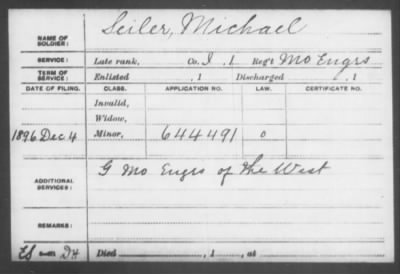 NAME OF SOLDIER: Seiler, Michael
SERVICE: Late rank, Co. I , 1 Reg't Mo Engrs
TERM OF SERVICE: Enlisted , 1 Discharged , 1
DATE OF FILING. CLASS. APPLICATION NO. LAW. CERTIFICATE NO.
Invalid,
Widow,
1896 Dec 4 Minor, 644491 0
ADDITIONAL SERVICES: G Mo Engrs of the West
REMARKS:
Died , 1 , at